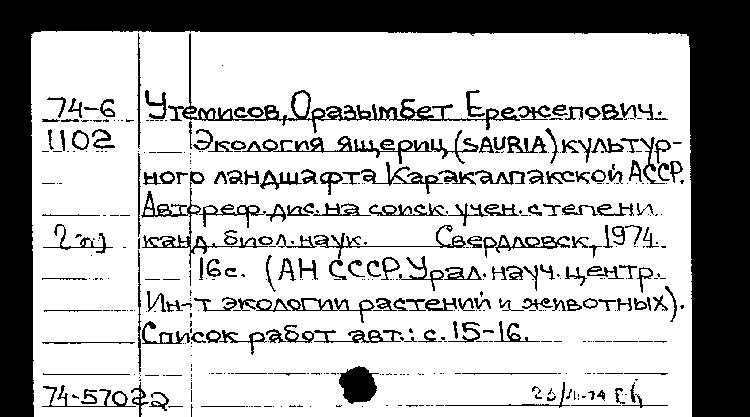 74-6 Утемисов, Оразымбет Ережепович.
1102 Экология ящериц (SAURIA) культур-
ного ландшафта Каракалпакской АССР.
Автореф. дис. на соиск. учен. степени
канд. биол. наук. Свердловск, 1974.
16с. (АН СССР. Урал. науч. центр.
Ин-т экологии растений и животных).
Список работ авт.: с. 15-16.
74-57022